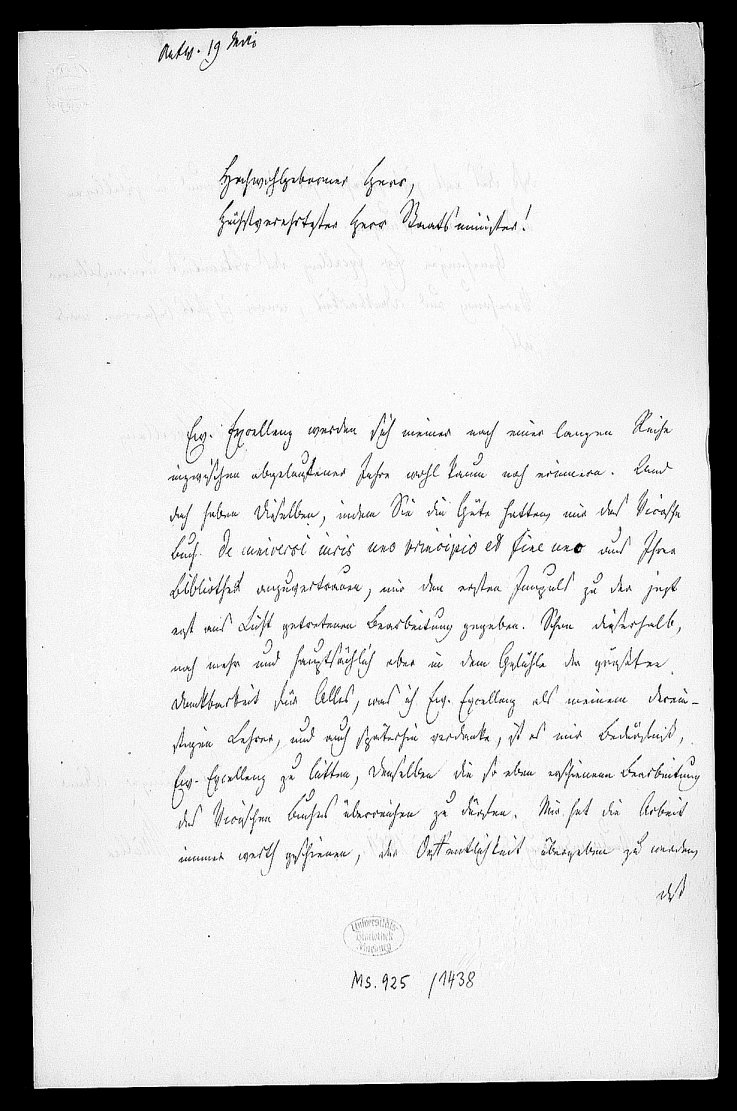 Antw. 19 Mai
Hochwohlgeborner Herr,
Hochverehrtester Herr Staatsminister!
Ew. Excellenz werden sich meiner nach einer langen Reihe
inzwischen abgelaufener Jahre wohl kaum noch erinnern. Und
doch haben Dieselben, indem Sie die Güte hatten, mir das Vicosche
Buch De universi iuris uno principio et fine uno aus Ihrer
Bibliothek anzuvertrauen, mir den ersten Impuls zu der jetzt
erst ans Licht getretenen Bearbeitung gegeben. Schon dieserhalb,
noch mehr und hauptsächlich aber in dem Gefühle der größten
Dankbarkeit für Alles, was ich Ew. Excellenz als meinem derein-
stigen Lehrer, und auch späterhin verdanke, ist es mir Bedürfniß,
Ew. Excellenz zu bitten, Denselben die so eben erschienene Bearbeitung
des Vicoschen Buches überreichen zu dürfen. Mir hat die Arbeit
immer werth geschienen, der Oeffentlichkeit übergeben zu werden,
daß
Universitäts-
Bibliothek
Marburg
Ms. 925 /1438